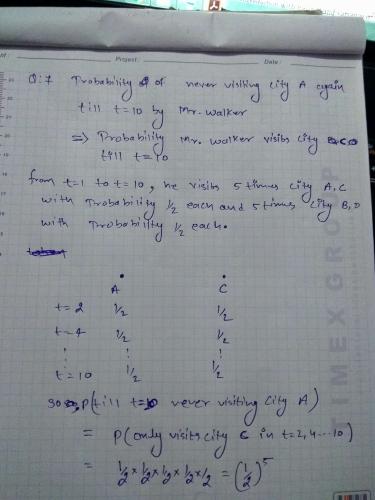 Project:
Date:
Q:7 Probability of of never visiting city A again
till t=10 by Mr. Walker
⇒ Probability Mr. Walker visits city
till t=10
from t=1 to t=10, he visits 5 times city A, C
with probability 1/2 each and 5 times city B, D
with probability 1/2 each.
A C
t=2 1/2 1/2
t=4 1/2 1/2
⋮ ⋮ ⋮
t=10 1/2 1/2
so P(till t=10 never visiting city A)
= P(only visits city C in t=2,4---10)
= 1/2 × 1/2 × 1/2 × 1/2 × 1/2 = (1/2)^5
IMEX GROUP